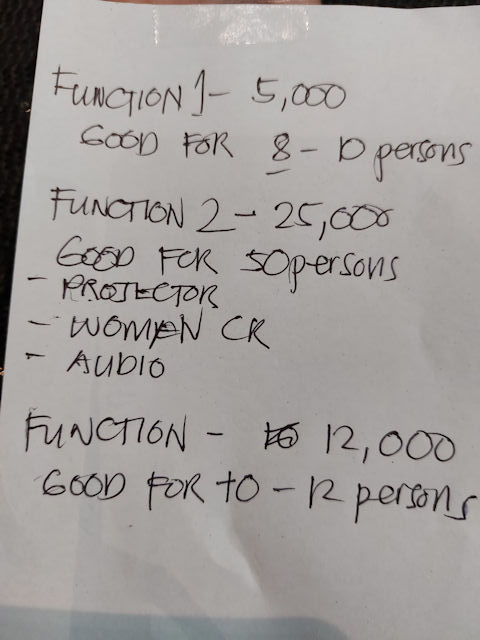 FUNCTION 1 - 5,000
GOOD FOR 8 - 10 persons
FUNCTION 2 - 25,000
GOOD FOR 50 persons
- PROJECTOR
- WOMEN CR
- AUDIO
FUNCTION - 12,000
GOOD FOR 10 - 12 persons